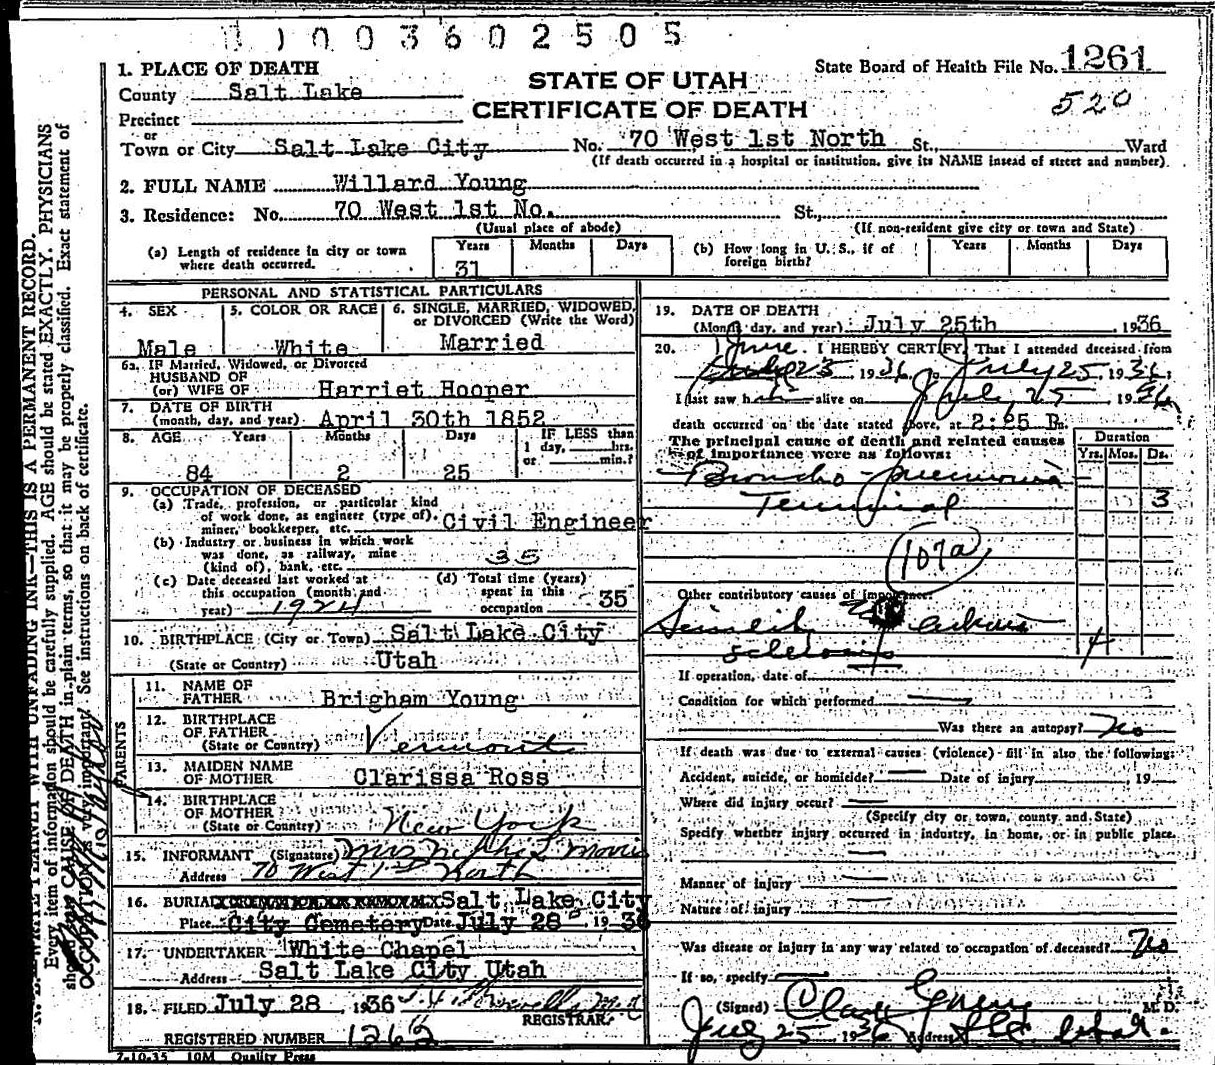 1003602505
1. PLACE OF DEATH
STATE OF UTAH
State Board of Health File No. 1261
County Salt Lake
CERTIFICATE OF DEATH
520
Precinct
or
Town or City Salt Lake City No. 70 West 1st North St., Ward
(If death occurred in a hospital or institution, give its NAME insead of street and number)
2. FULL NAME Willard Young
3. Residence: No. 70 West 1st No. St.,
(Usual place of abode) (If non-resident give city or town and State)
(a) Length of residence in city or town where death occurred. Years 31 Months Days (b) How long in U. S., if of foreign birth? Years Months Days
PERSONAL AND STATISTICAL PARTICULARS
4. SEX Male
5. COLOR OR RACE White
6. SINGLE, MARRIED, WIDOWED, or DIVORCED (Write the Word) Married
6a. IF Married, Widowed, or Divorced
HUSBAND OF
(or) WIFE OF Harriet Hooper
7. DATE OF BIRTH
(month, day, and year) April 30th 1852
8. AGE Years Months Days IF LESS than
1 day, hrs.
or min.?
84 2 25
9. OCCUPATION OF DECEASED
(a) Trade, profession, or particular kind
of work done, as engineer (type of),
miner, bookkeeper, etc. Civil Engineer
(b) Industry or business in which work
was done, as railway, mine
(kind of), bank, etc. 35
(c) Date deceased last worked at
this occupation (month and
year) 1924
(d) Total time (years)
spent in this
occupation 35
10. BIRTHPLACE (City or Town) Salt Lake City
(State or Country) Utah
PARENTS
11. NAME OF
FATHER Brigham Young
12. BIRTHPLACE
OF FATHER
(State or Country) Vermont
13. MAIDEN NAME
OF MOTHER Clarissa Ross
14. BIRTHPLACE
OF MOTHER
(State or Country) New York
15. INFORMANT (Signature) Mrs Nephi L Morris
Address 70 West 1st North
16. BURIAL Salt Lake City
Place City Cemetery Date July 28 1936
17. UNDERTAKER White Chapel
Address Salt Lake City Utah
18. FILED July 28 1936 M.D.
REGISTRAR.
REGISTERED NUMBER 1262
7-10-35 10M Quality Press
19. DATE OF DEATH
(Month, day, and year) July 25th, 1936
20. I HEREBY CERTIFY, That I attended deceased from
June 23, 1936, to July 25, 1936,
I last saw h alive on July 25, 1936
death occurred on the date stated above, at 2:25 P m.
The principal cause of death and related causes
of importance were as follows:
Duration
Yrs. Mos. Ds.
Broncho-pneumonia
Terminal 3
107a
Other contributory causes of importance:
Senility Arterio
sclerosis
If operation, date of
Condition for which performed
Was there an autopsy? No
If death was due to external causes (violence) fill in also the following:
Accident, suicide, or homicide? Date of injury, 19
Where did injury occur?
(Specify city or town, county and State)
Specify whether injury occurred in industry, in home, or in public place.
Manner of injury
Nature of injury
Was disease or injury in any way related to occupation of deceased? No
If so, specify
(Signed) M. D.
July 25, 1936 Address SLC Utah.
N. B.—WRITE PLAINLY WITH UNFADING INK—THIS IS A PERMANENT RECORD.
Every item of information should be carefully supplied. AGE should be stated EXACTLY. PHYSICIANS
should state CAUSE OF DEATH in plain terms, so that it may be properly classified. Exact statement of
OCCUPATION is very important. See instructions on back of certificate.